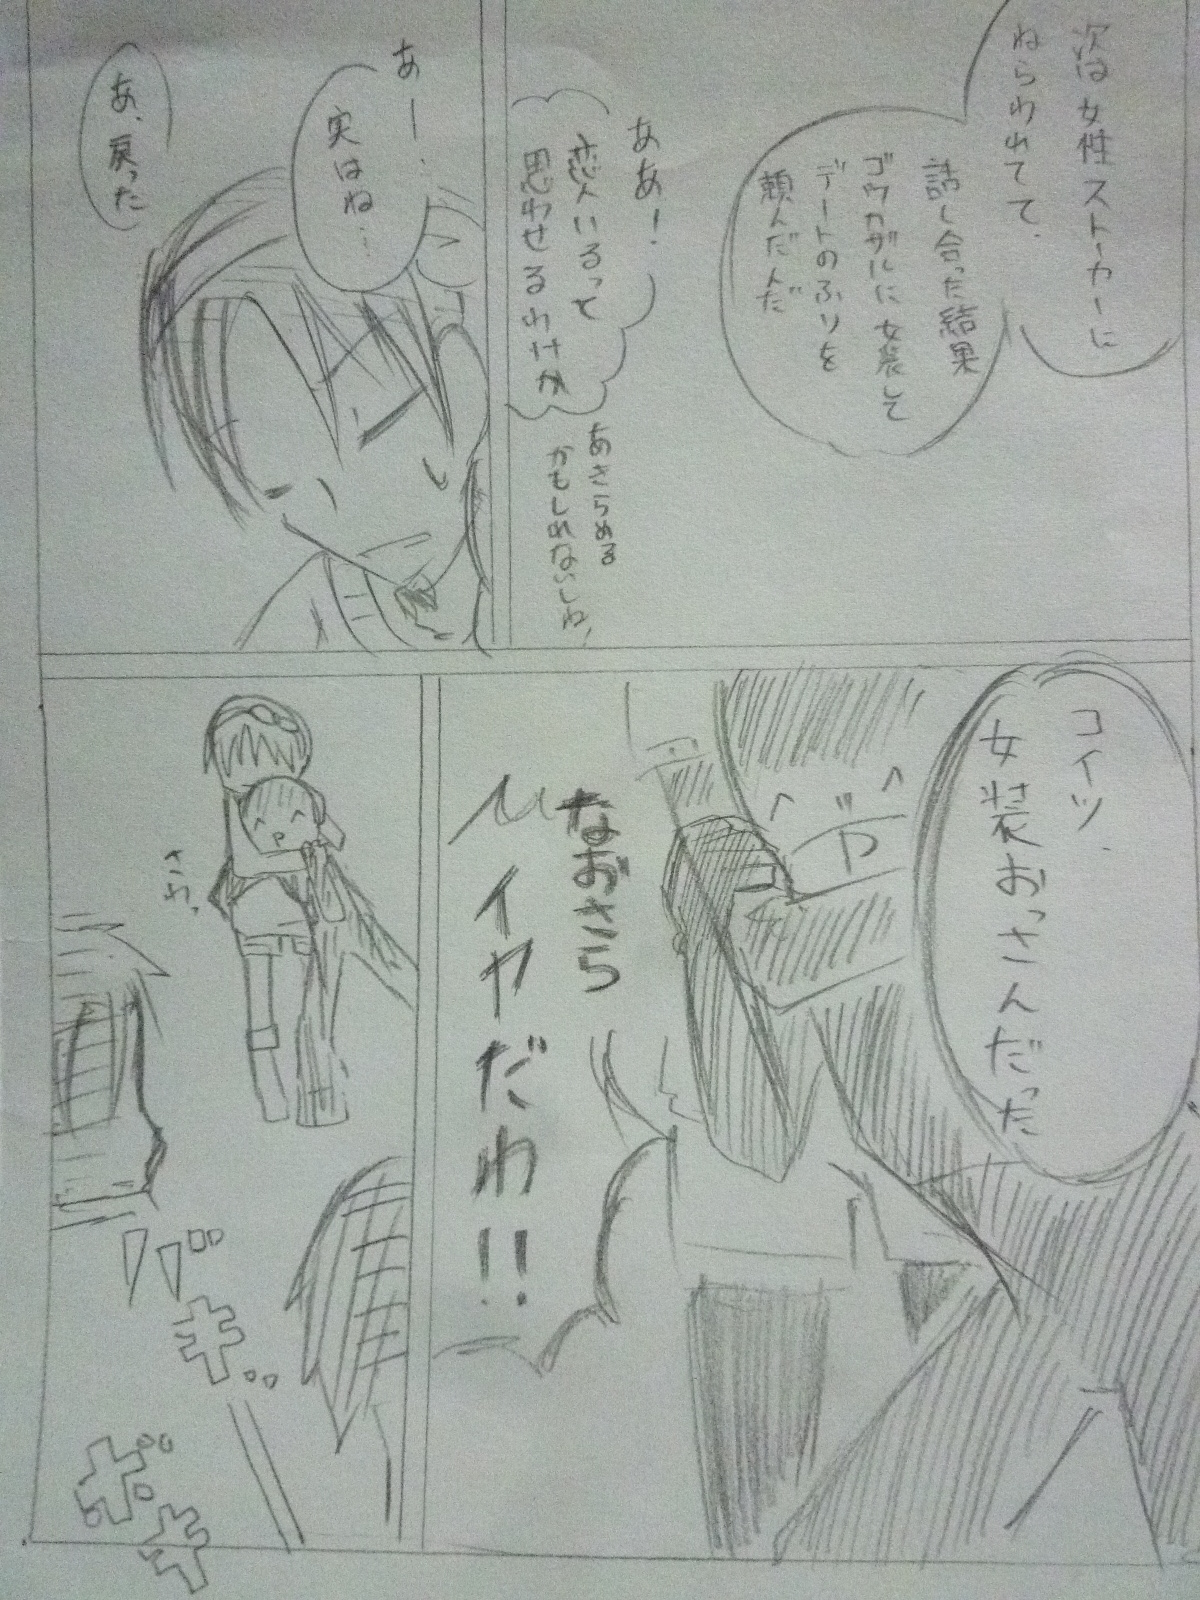 次は女性ストーカーに
ねらわれてて、
話し合った結果
ゴウカザルに女装して
デートのふりを
頼んだんだ
ああ!
恋人いるって
思わせるわけか
あきらめる
かもしれないしね!
あー…
実はね…
あ、戻った
コイツ、
女装おっさんだった
なおさら
イヤだわ!!
さわ。
バキ
ボキ